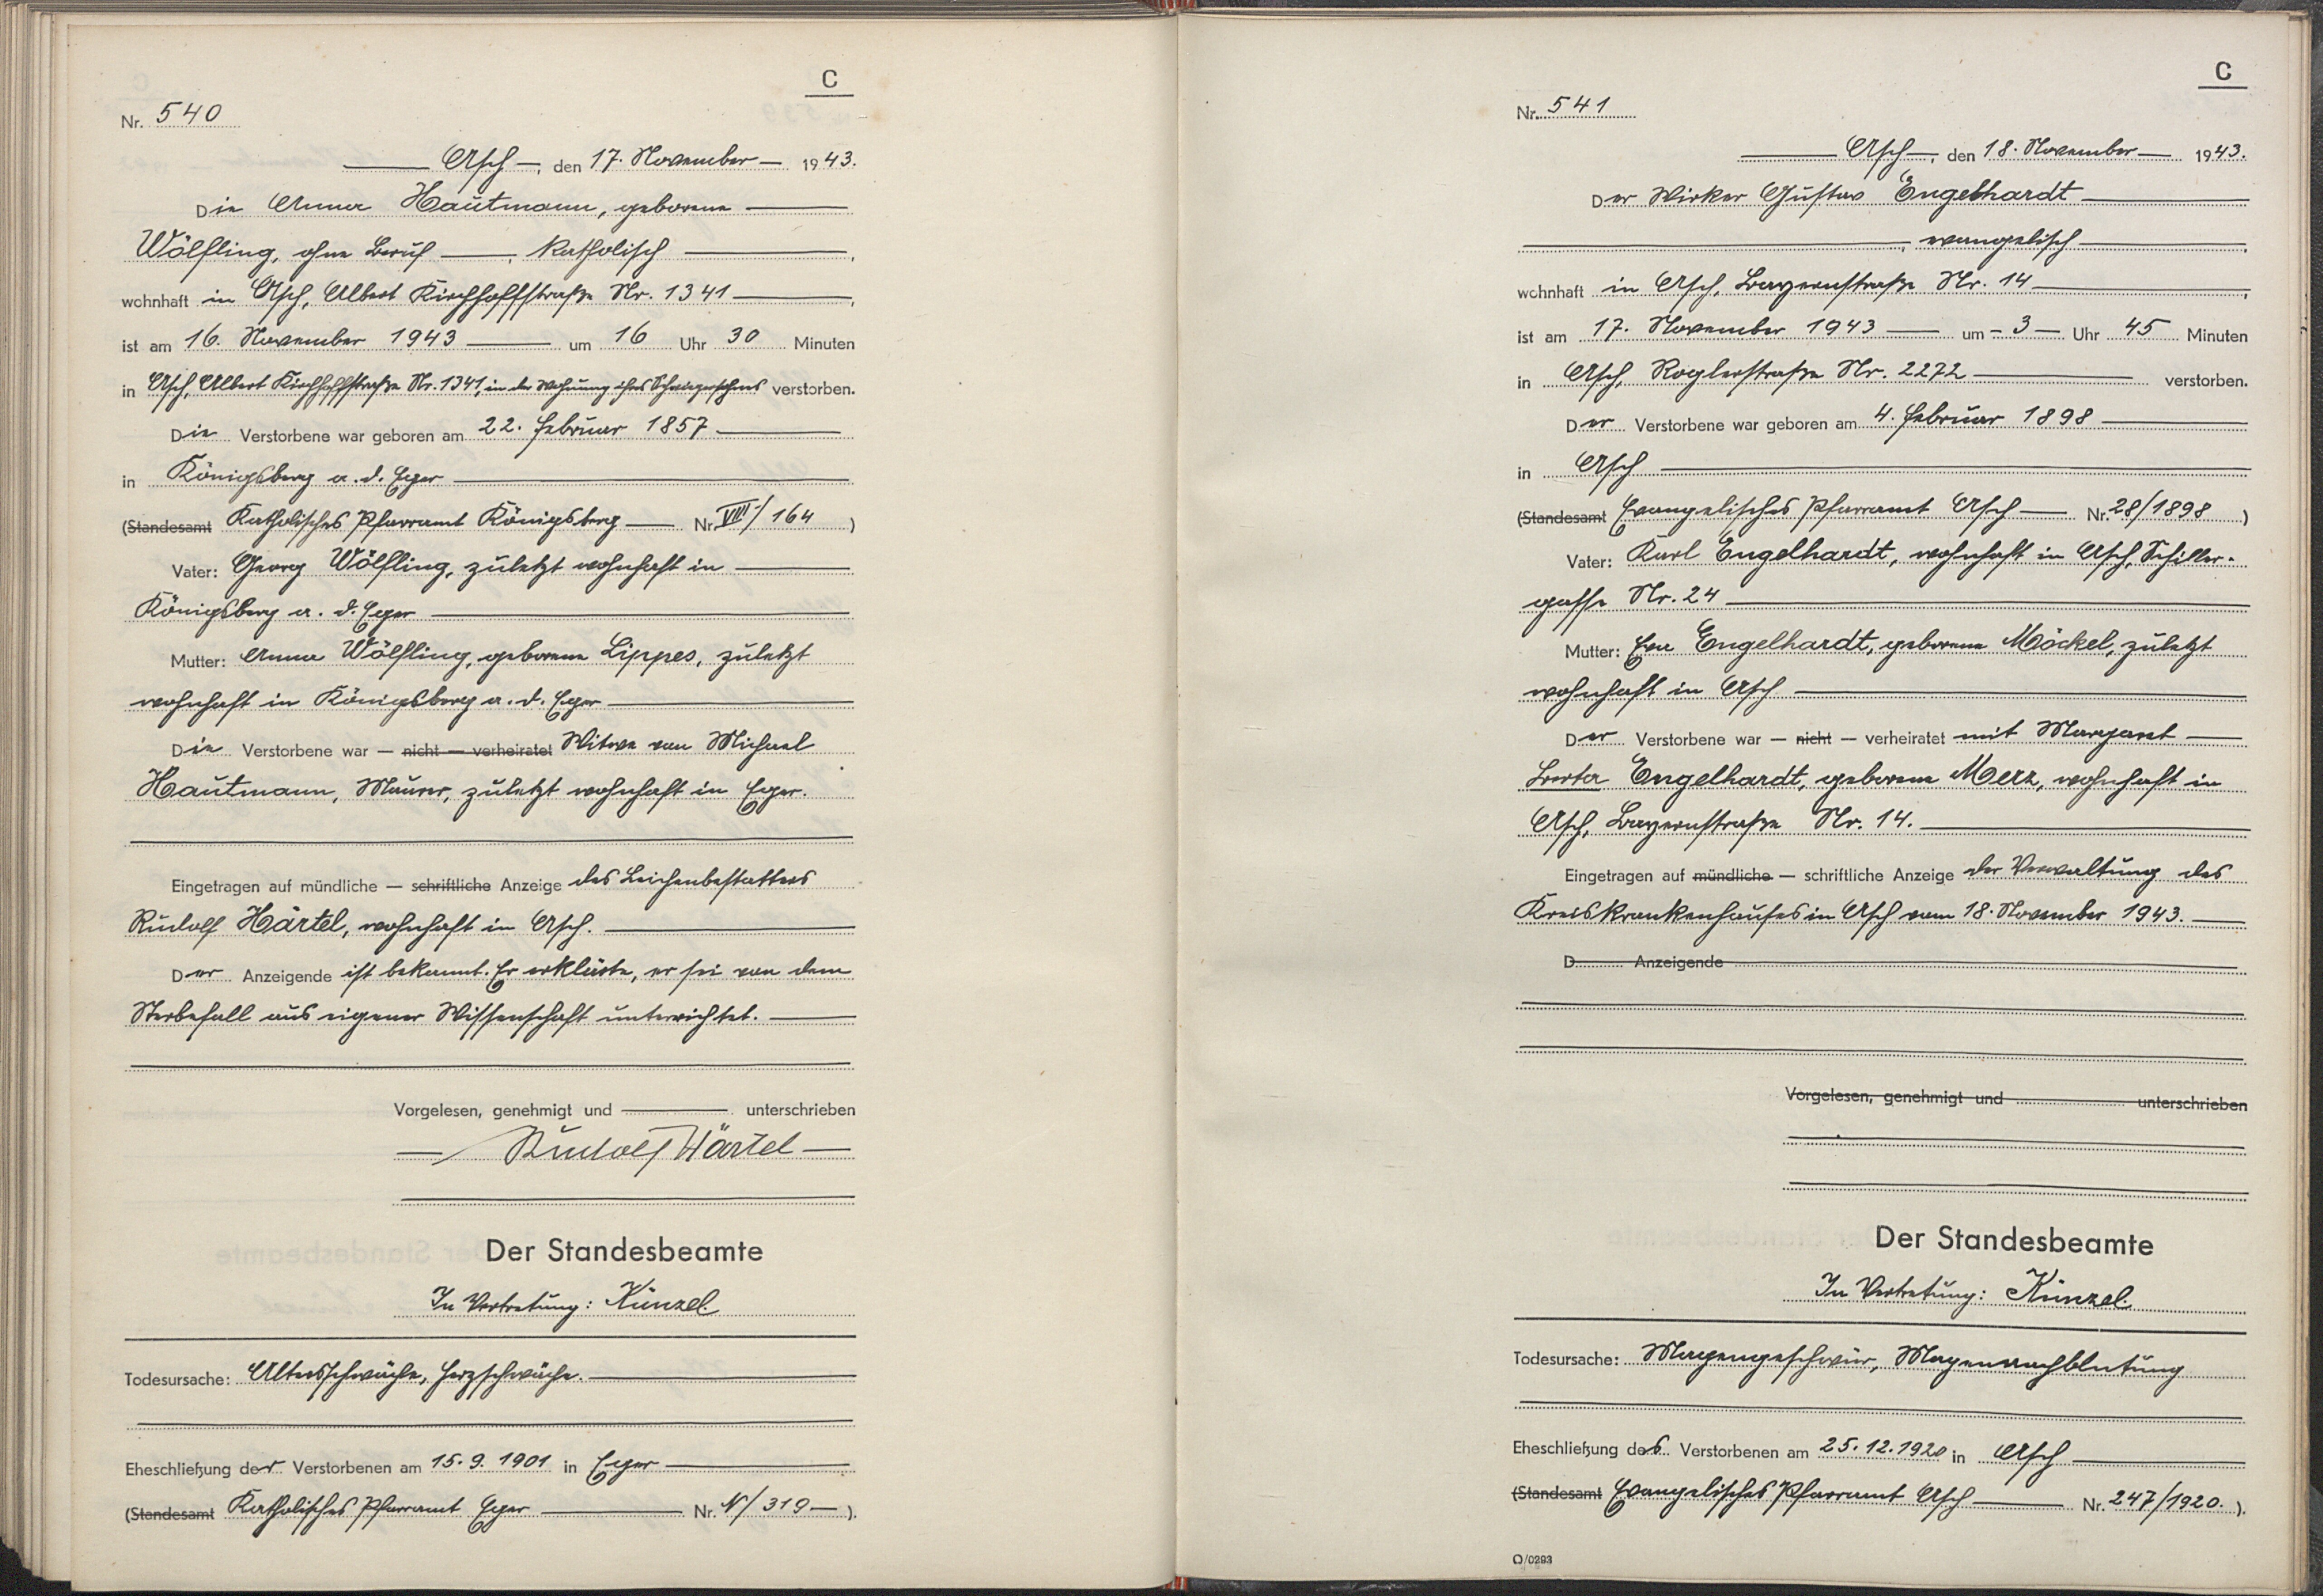 C
Nr. 540
Asch, den 17. November 1943.
Die Anna Hautmann, geborene
Wölfling, ohne Beruf, katholisch,
wohnhaft in Asch, Albert Kirchhoffstraße Nr. 1341,
ist am 16. November 1943 um 16 Uhr 30 Minuten
in Asch, Albert Kirchhoffstraße Nr. 1341, in der Wohnung ihres Schwiegersohnes verstorben.
Die Verstorbene war geboren am 22. Februar 1857
in Königsberg a. d. Eger
(Standesamt Katholisches Pfarramt Königsberg Nr. VIII/164)
Vater: Georg Wölfling, zuletzt wohnhaft in
Königsberg a. d. Eger
Mutter: Anna Wölfling, geborene Lippes, zuletzt
wohnhaft in Königsberg a. d. Eger
Die Verstorbene war — nicht — verheiratet Witwe von Michael
Hautmann, Maurer, zuletzt wohnhaft in Eger.
Eingetragen auf mündliche — schriftliche Anzeige des Leichenbestatters
Rudolf Härtel, wohnhaft in Asch.
Der Anzeigende ist bekannt. Er erklärte, er sei von dem
Sterbefall aus eigener Wissenschaft unterrichtet.
Vorgelesen, genehmigt und unterschrieben
Rudolf Härtel
Der Standesbeamte
In Vertretung: Künzel.
Todesursache: Altersschwäche, Herzschwäche.
Eheschließung der Verstorbenen am 15. 9. 1901 in Eger
(Standesamt Katholisches Pfarramt Eger Nr. N/319).
C
Nr. 541
Asch, den 18. November 1943.
Der Wirker Gustav Engelhardt
, evangelisch,
wohnhaft in Asch, Bayernstraße Nr. 14,
ist am 17. November 1943 um 3 Uhr 45 Minuten
in Asch, Roglerstraße Nr. 2272 verstorben.
Der Verstorbene war geboren am 4. Februar 1898
in Asch
(Standesamt Evangelisches Pfarramt Asch Nr. 28/1898)
Vater: Karl Engelhardt, wohnhaft in Asch, Schiller-
gasse Nr. 24
Mutter: Eva Engelhardt, geborene Möckel, zuletzt
wohnhaft in Asch
Der Verstorbene war — nicht — verheiratet mit Margaret
Berta Engelhardt, geborene Merz, wohnhaft in
Asch, Bayernstraße Nr. 14.
Eingetragen auf mündliche — schriftliche Anzeige der Verwaltung des
Kreiskrankenhauses in Asch vom 18. November 1943.
D Anzeigende
Vorgelesen, genehmigt und unterschrieben
Der Standesbeamte
In Vertretung: Künzel.
Todesursache: Magengeschwür, Magennachblutung
Eheschließung des Verstorbenen am 25. 12. 1920 in Asch
(Standesamt Evangelisches Pfarramt Asch Nr. 247/1920.).
O/0293